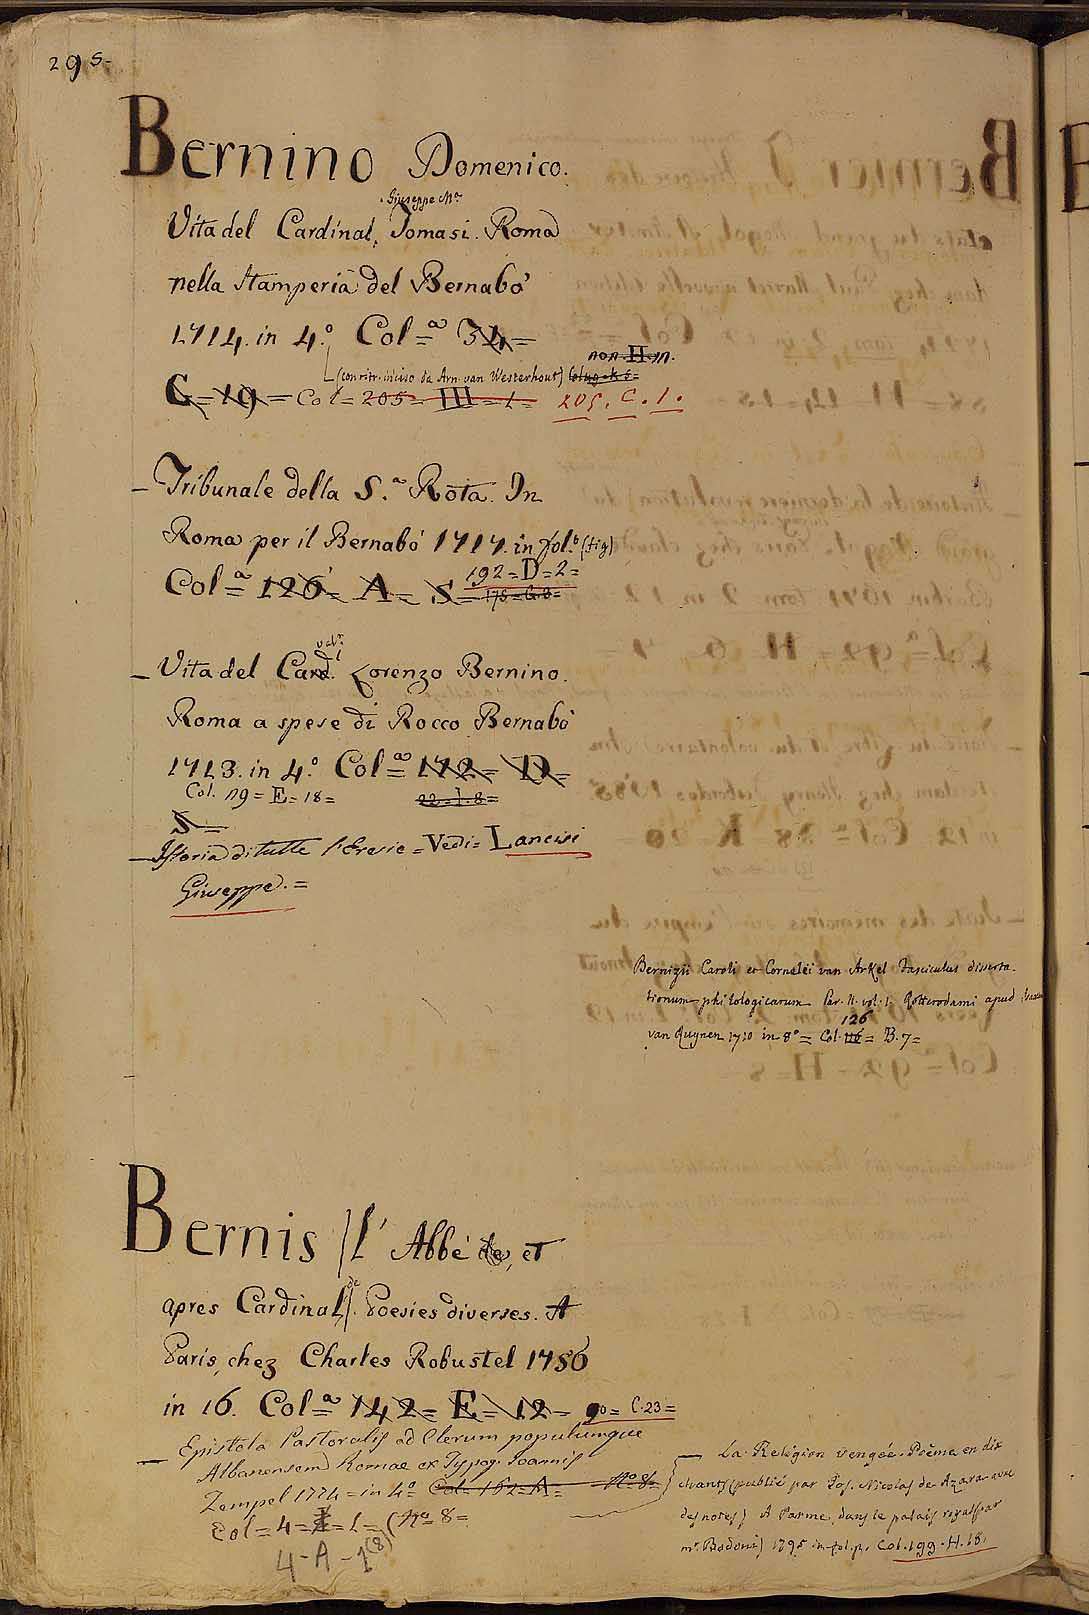 295-
Bernino Domenico.
Giuseppe Mª
Vita del Cardinal, Tomasi. Roma
nella Stamperia del Bernabò
1714. in 4.º Colª= 34=
non H n.
(con ritr. inciso da Arn. van Westerhout)
G=19= Col=205=III=1= 205. C. 1.
_ Tribunale della S.ª Rota. In
Roma per il Bernabò 1717. in fol.º (fig)
192=D=2=
Colª= 126= A= S= 178=G.8=
val.
_ Vita del Card. Lorenzo Bernino.
Roma a spese di Rocco Bernabò
1713. in 4.º Colª= 172= D=
Col. 19=E=18= 22=I.8=
S=
_ Istoria di tutte l'Eresie = Vedi= Lancisi
Giuseppe.=
Bernizii Caroli et Cornelii van Arkel Fasciculus disserta-
tionum philologicarum Par. II. vol. 1. Rotterodami apud
126
van Ruynen 1710 in 8º= Col. 116= B.7=
Bernis (l' Abbé de, et
apres Cardinal) de Poesies diverses. A
Paris, chez Charles Robustel 1756
in 16. Colª= 142= E= 12= 90= C.23=
_ Epistola Pastoralis ad Clerum populumque
Albanensem Romae ex Typog. Joannis
Zempel 1774= in 4º Col= 162=A= Nº 8=
Col=4=I=1= (Nº 8=
4-A-1(8)
_ La Religion vengée. Poëme en dix
chants (publié par Jos. Nicolas de Azara avec
des notes) A Parme, dans le palais royal (par
mr. Bodoni) 1795 in fol. p. Col. 199.H.18.